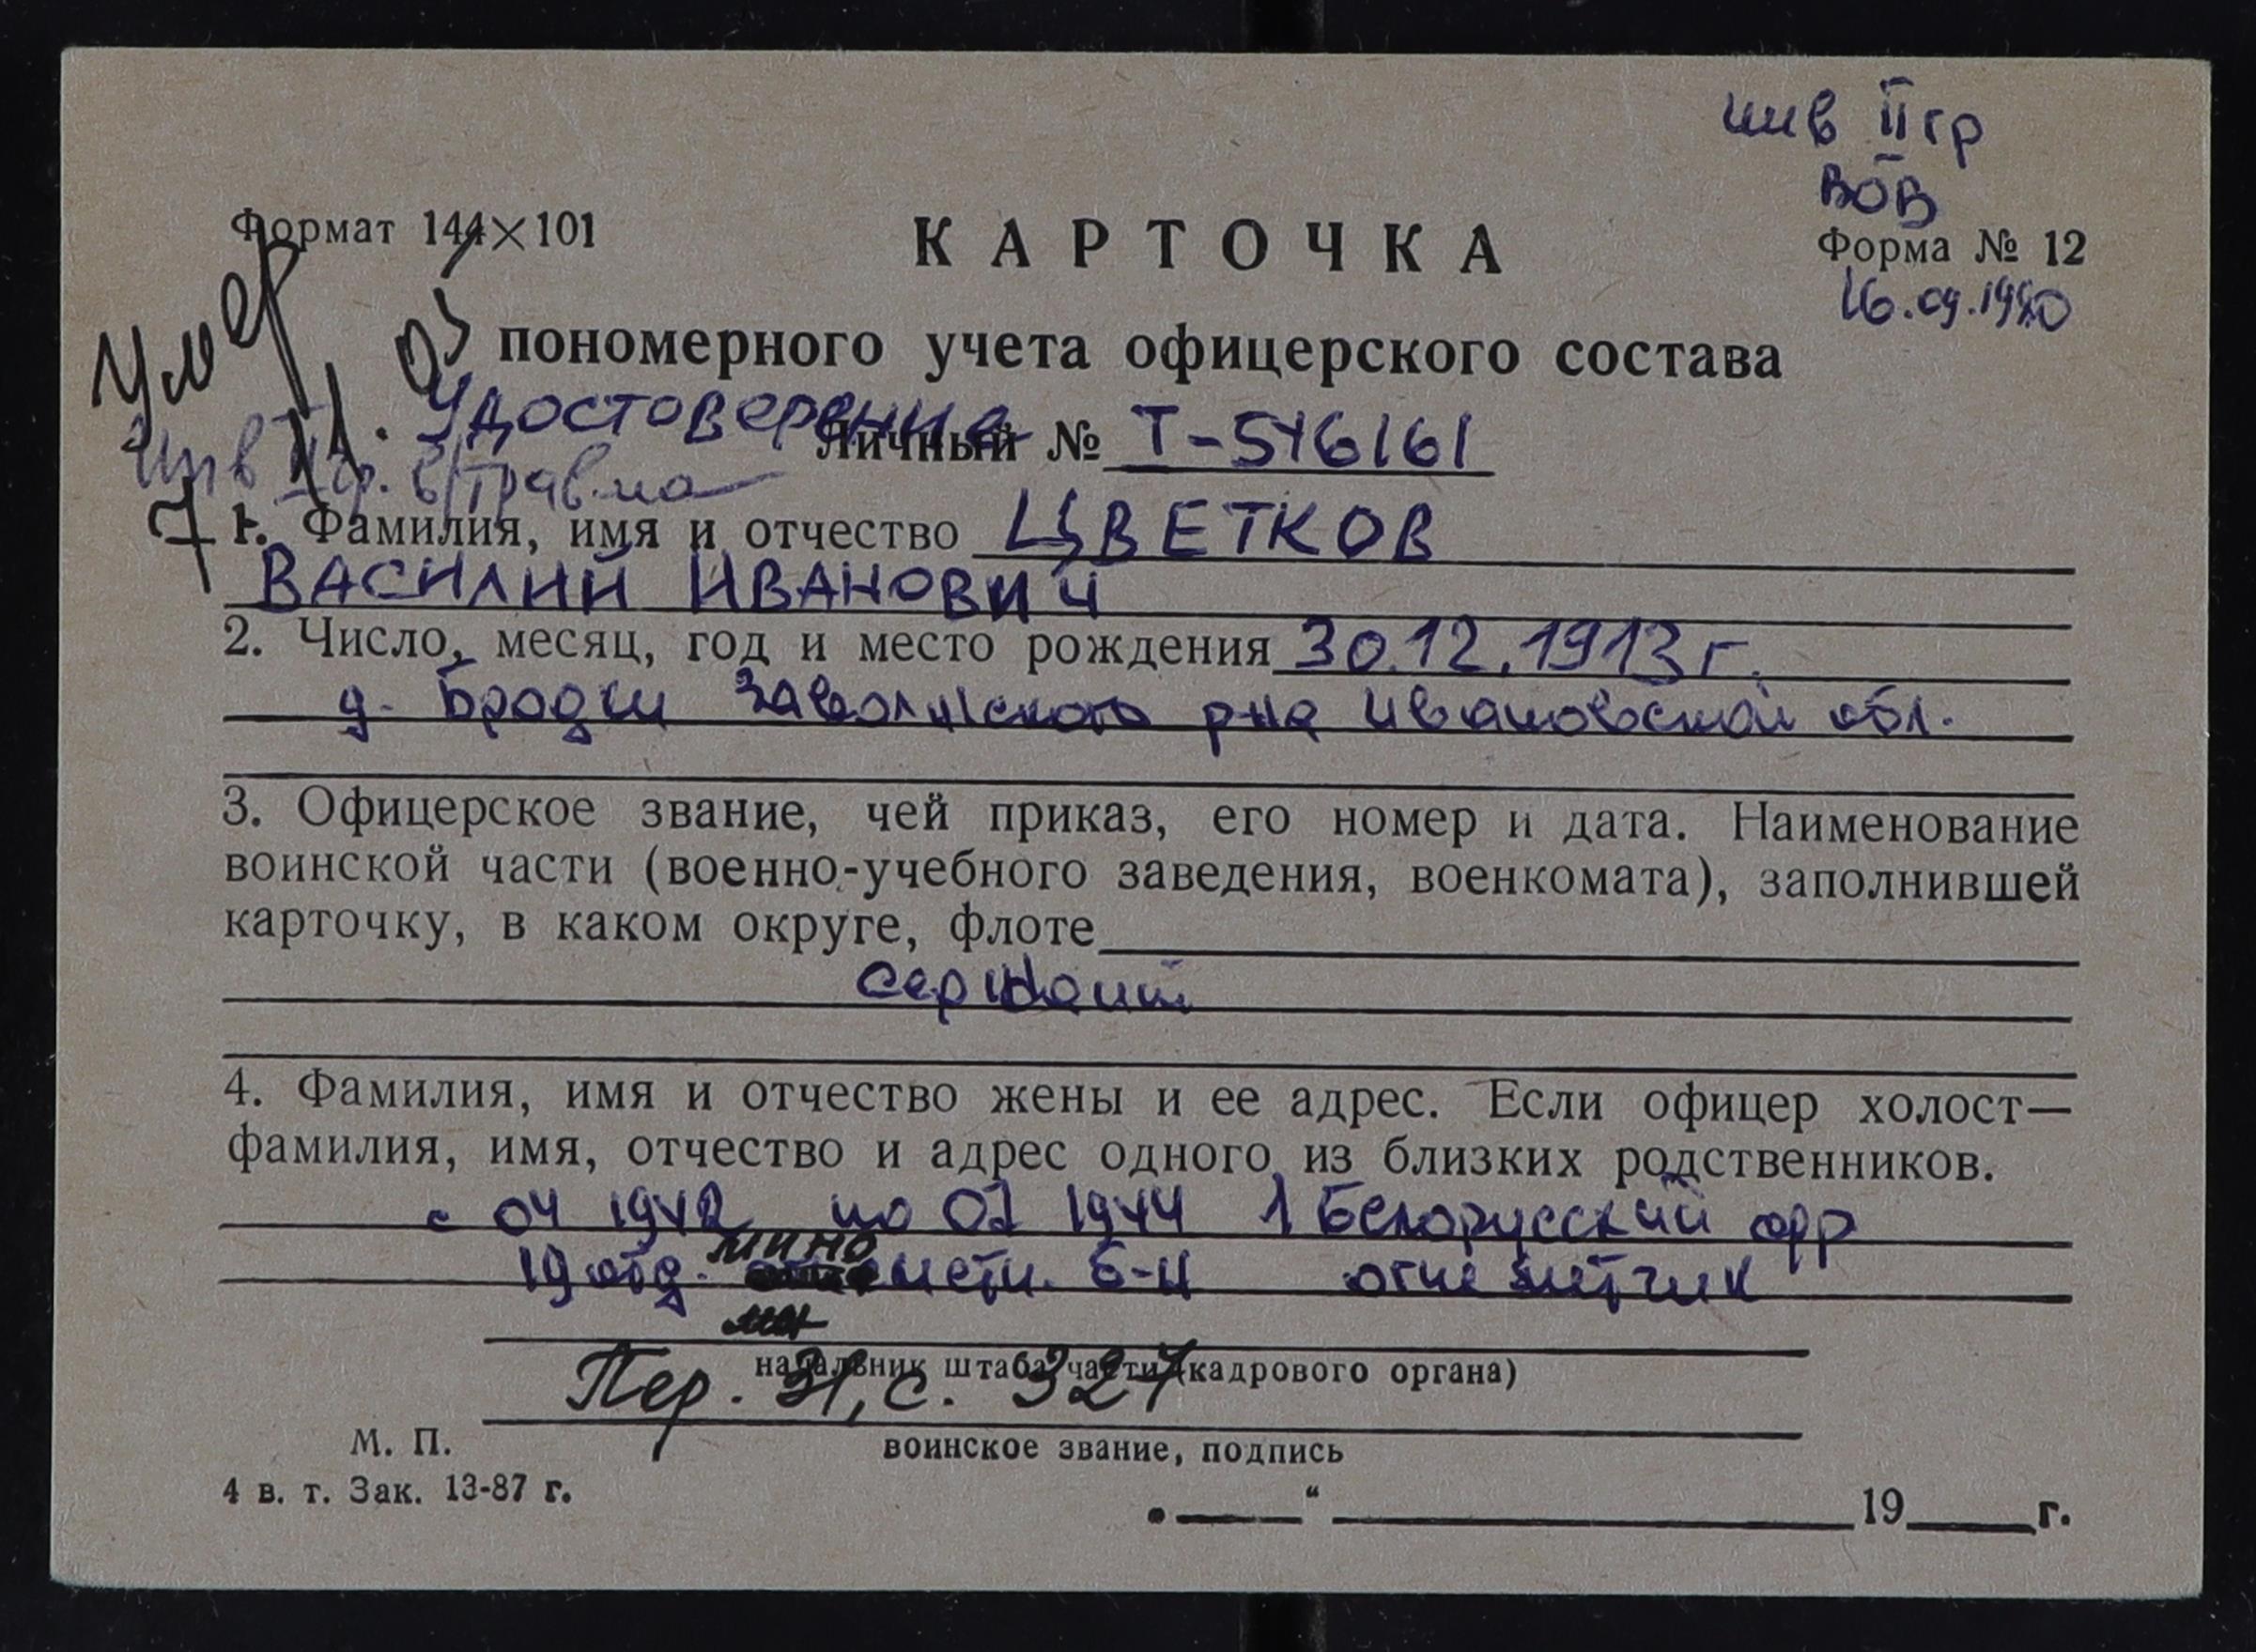 инв II гр
ВОВ
Формат 144×101
КАРТОЧКА
Форма № 12
16.09.1990
Умер
пономерного учета офицерского состава
Удостоверение
Личный № Т-546161
Инв II гр. в/травма
1. Фамилия, имя и отчество ЦВЕТКОВ
ВАСИЛИЙ ИВАНОВИЧ
2. Число, месяц, год и место рождения 30.12.1913 г.
д. Бродки Заволжского р-на Ивановской обл.
3. Офицерское звание, чей приказ, его номер и дата. Наименование
воинской части (военно-учебного заведения, военкомата), заполнившей
карточку, в каком округе, флоте
сержант
4. Фамилия, имя и отчество жены и ее адрес. Если офицер холост—
фамилия, имя, отчество и адрес одного из близких родственников.
с 04 1942 по 07 1944 1 Белорусский фр
мино
19 отд. метн. б-н огнеметчик
начальник штаба части (кадрового органа)
Пер. 31, с. 327
воинское звание, подпись
М. П.
4 в. т. Зак. 13-87 г.
„ “ 19 г.